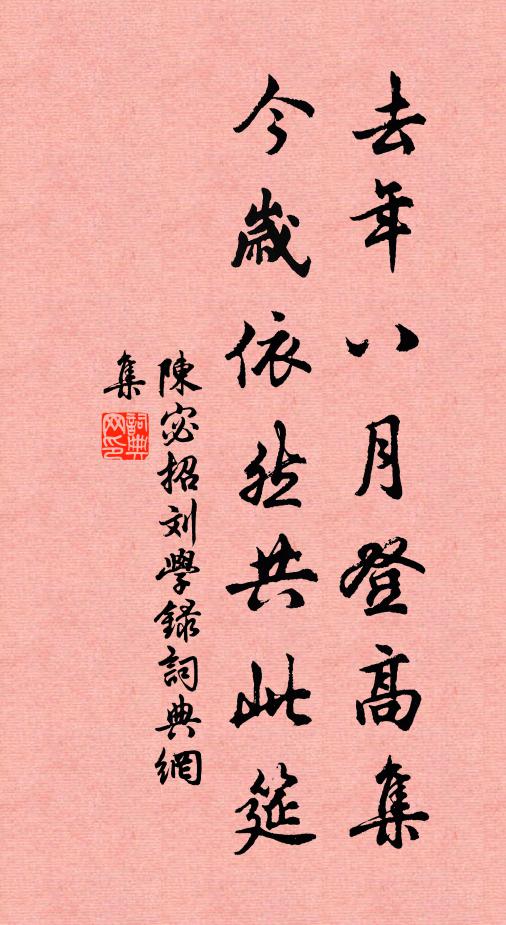 去年八月登高集
今歲依然共此筵
陳宓招刘學録詞典網
集
詞典
网印